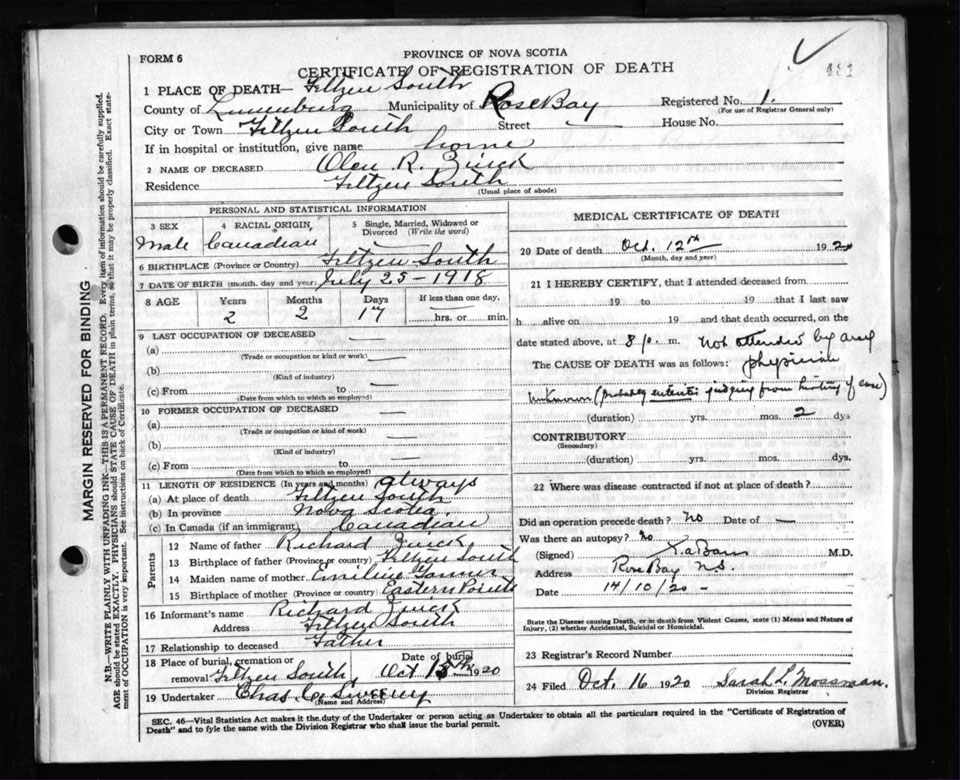 PROVINCE OF NOVA SCOTIA
FORM 6
CERTIFICATE OF REGISTRATION OF DEATH
1 PLACE OF DEATH— Feltzen South
County of Lunenburg Municipality of Rose Bay Registered No. 1.
(For use of Registrar General only)
City or Town Feltzen South Street — House No.
If in hospital or institution, give name home
2 NAME OF DECEASED Olen R. Zinck
Residence Feltzen South
(Usual place of abode)
PERSONAL AND STATISTICAL INFORMATION
3 SEX 4 RACIAL ORIGIN 5 Single, Married, Widowed or Divorced (Write the word)
Male Canadian —
6 BIRTHPLACE (Province or Country) Feltzen South
7 DATE OF BIRTH (month, day and year) July 25-1918
8 AGE Years Months Days If less than one day,
2 2 17 hrs. or min.
9 LAST OCCUPATION OF DECEASED
(a)
(Trade or occupation or kind or work)
(b)
(Kind of industry)
(c) From to
(Date from which to which so employed)
10 FORMER OCCUPATION OF DECEASED
(a)
(Trade or occupation or kind of work)
(b)
(Kind of industry)
(c) From to
(Date from which to which so employed)
11 LENGTH OF RESIDENCE (In years and months) always
(a) At place of death Feltzen South
(b) In province Nova Scotia
(c) In Canada (if an immigrant) Canadian
Parents
12 Name of father Richard Zinck
13 Birthplace of father (Province or country) Feltzen South
14 Maiden name of mother
15 Birthplace of mother (Province or Country) Eastern Points
16 Informant's name Richard Zinck
Address Feltzen South
17 Relationship to deceased Father
18 Place of burial, cremation or removal Feltzen South Date of burial Oct 1920
19 Undertaker Chas C Sweeny
(Name and Address)
MEDICAL CERTIFICATE OF DEATH
20 Date of death Oct. 12th 1920
(Month, day and year)
21 I HEREBY CERTIFY, that I attended deceased from
19 to 19 that I last saw
h alive on 19 and that death occurred, on
date stated above, at 8 p. m. Not attended by any
The CAUSE OF DEATH was as follows: physician
Unknown (probably enteritis judging from history of case)
(duration) yrs. mos. 2 dys
CONTRIBUTORY
(Secondary)
(duration) yrs. mos. dys.
22 Where was disease contracted if not at place of death?
Did an operation precede death? No Date of —
Was there an autopsy? No
(Signed) M.D.
Address Rose Bay N.S.
Date 14/10/20 -
State the Disease causing Death, or in death from Violent Causes, state (1) Means and Nature of
Injury, (2) whether Accidental, Suicidal or Homicidal.
23 Registrar's Record Number
24 Filed Oct. 16 1920 Sarah L. Mossman.
Division Registrar
SEC. 46—Vital Statistics Act makes it the duty of the Undertaker or person acting as Undertaker to obtain all the particulars required in the "Certificate of Registration of
Death" and to fyle the same with the Division Registrar who shall issue the burial permit.
(OVER)
MARGIN RESERVED FOR BINDING
N.B.—WRITE PLAINLY WITH UNFADING INK—THIS IS A PERMANENT RECORD. Every item of information should be carefully supplied.
AGE should be stated EXACTLY. PHYSICIANS should STATE CAUSE OF DEATH in plain terms, so that it may be properly classified. Exact statement
of OCCUPATION is very important. See instructions on back of Certificate.